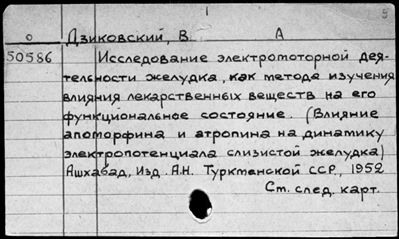 1 5
о Дзиковский, В. А
50586 Исследование электромоторной дея-
тельности желудка, как метода изучения
влияния лекарственных веществ на его
функциональное состояние. (Влияние
апоморфина и атропина на динамику
электропотенциала слизистой желудка)
Ашхабад, Изд. А.Н. Туркменской ССР, 1952
Ст. след. карт.